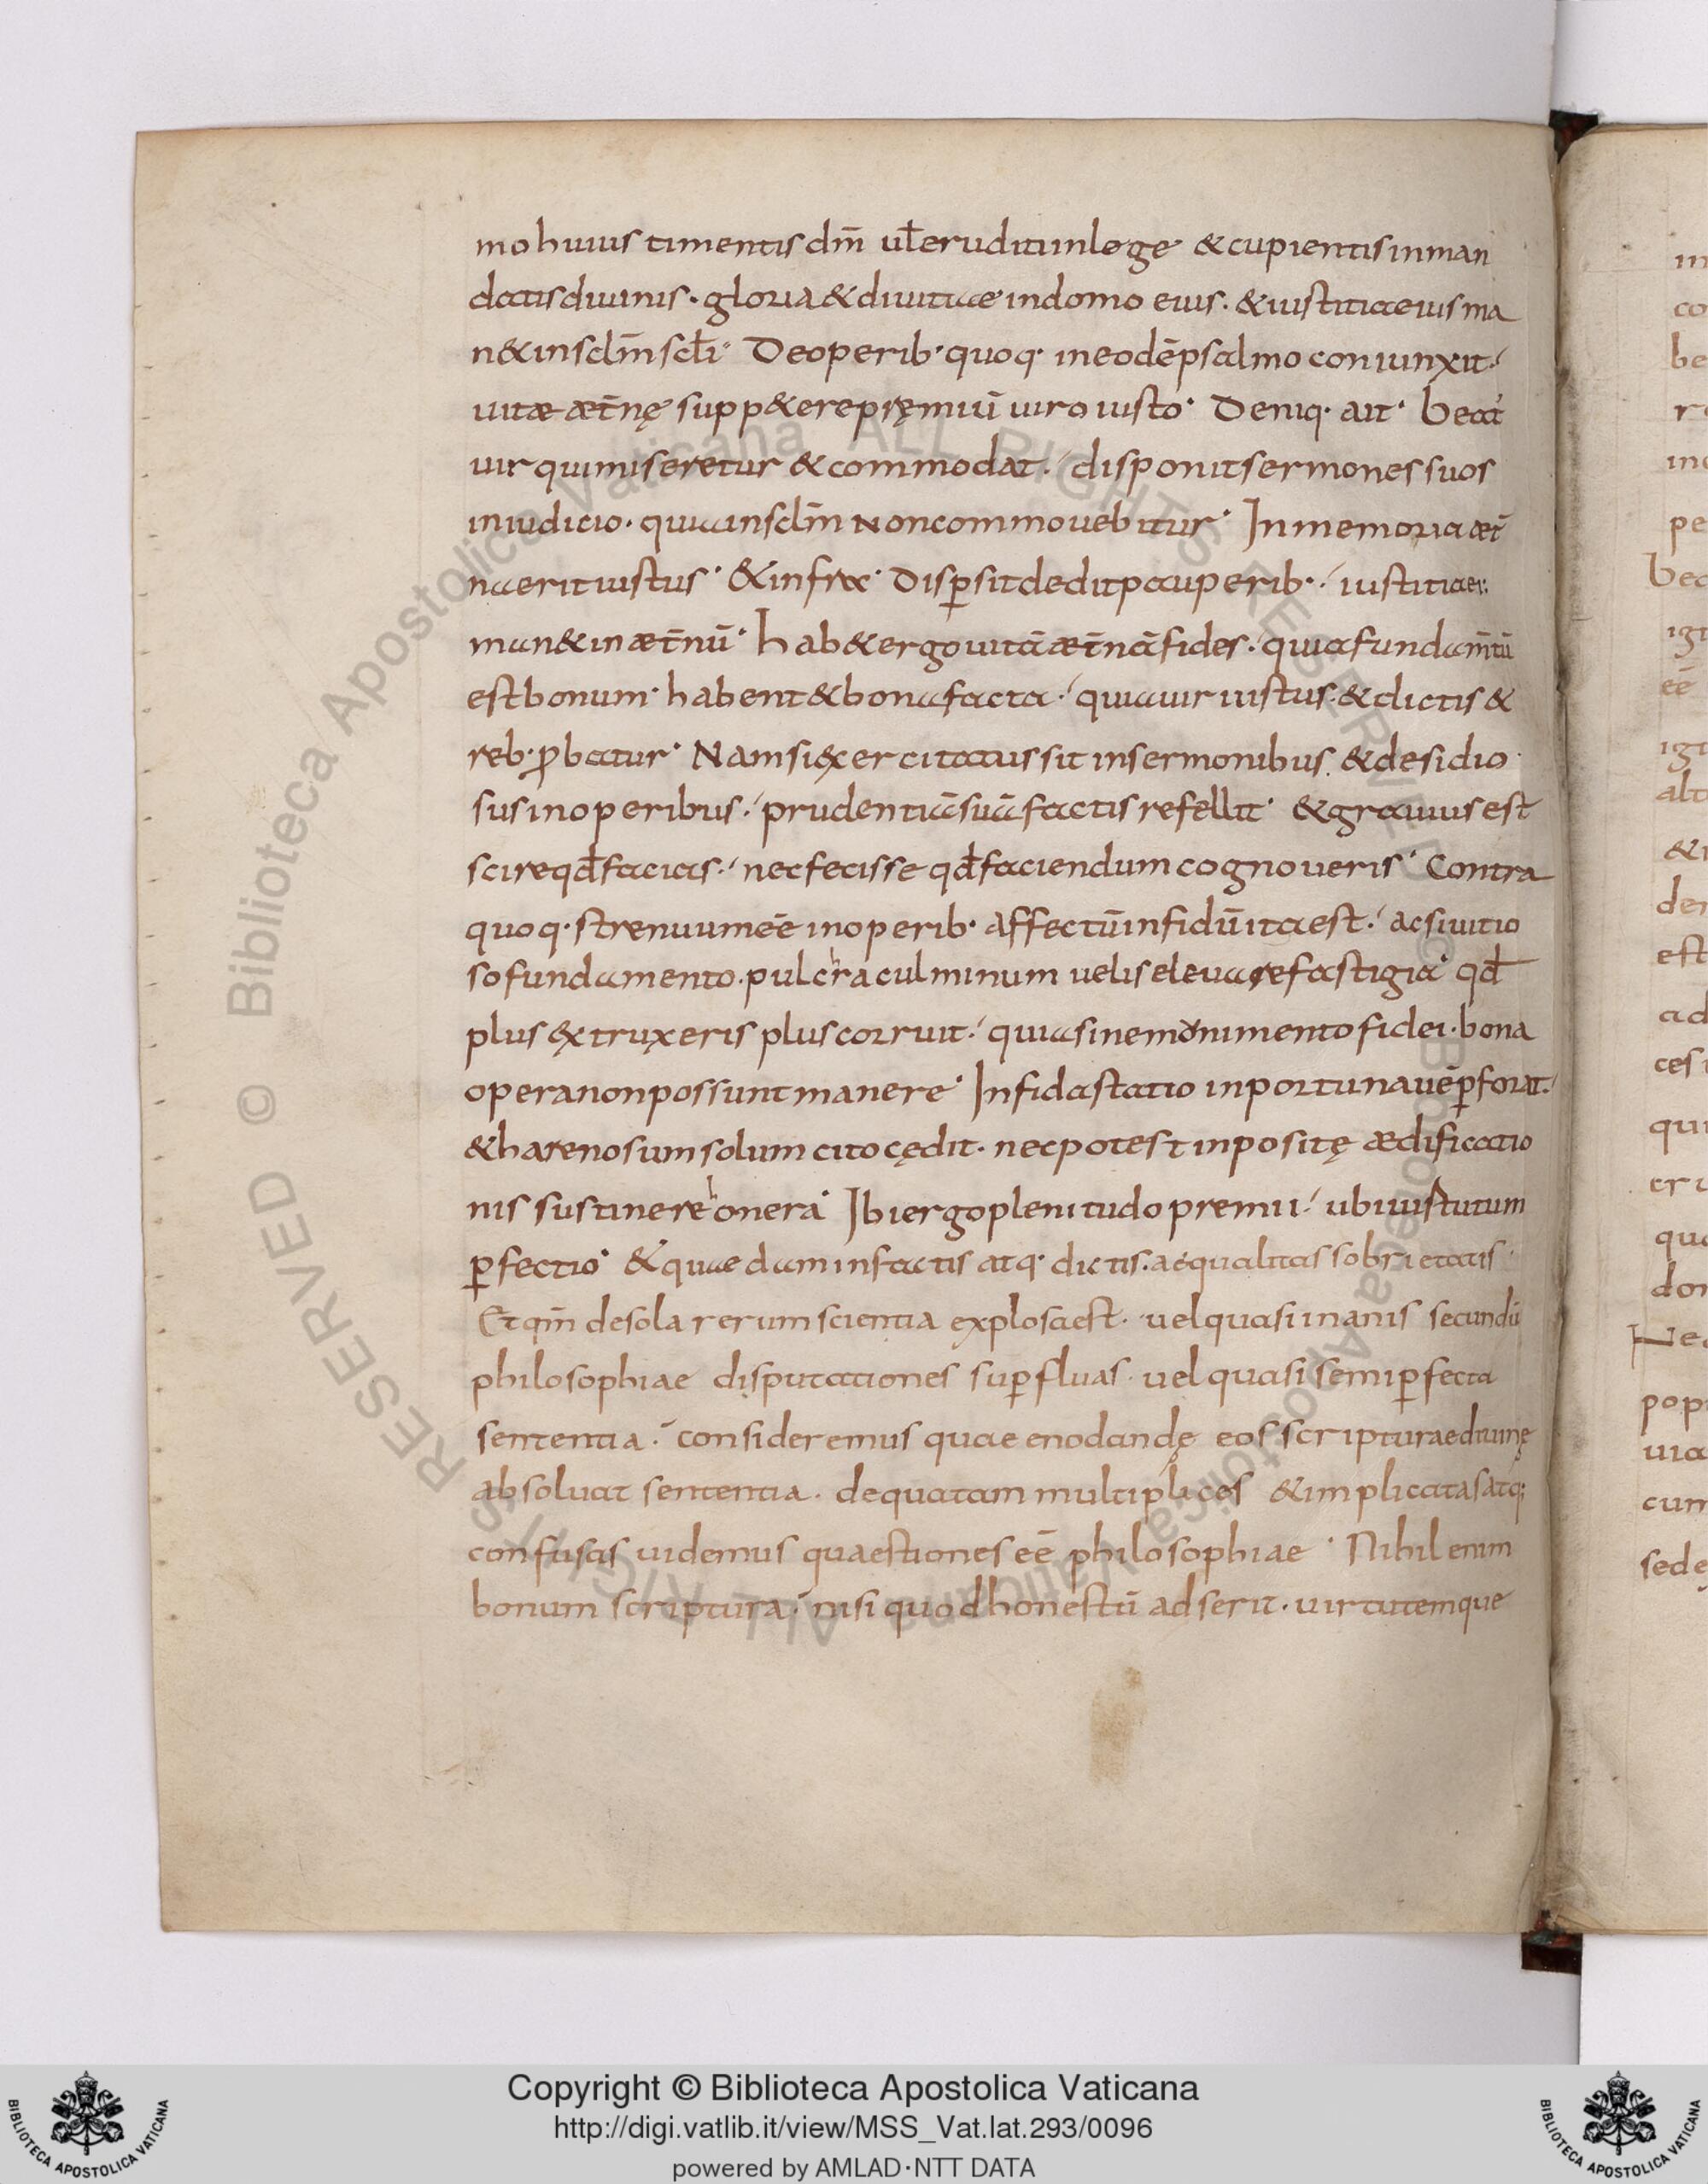 mo huius timentis dm̄ ut̄ eruditi inlege & cupientis inman
datis diuinis · gloria & diuitiae indomo eius · & iustitia eius ma
n& in sclm̄ scłi · De operib· quoq· in eodē psalmo coniunxit ·
uitæ æt̄nę supp&ere pręmiū uiro iusto · Deniq· ait · beat'
uir qui miseretur & commodat · disponit sermones suos
in iudicio · quia insclm̄ Non commouebitur · In memoria æt̄
na erit iustus · & infra · Dispersit dedit pauperib· · iustitia ei:
man& in æt̄nū · hab& ergo uitā æt̄nā fides · quia fundam̄tū
est bonum · habent & bona facta · quia uir iustus · & dictis &
reb· ꝓbatur · Nam si exercitatus sit in sermonibus · & desidio
sus in operibus · prudentiā suā factis refellit · & grauius est
scire qđ facias · nec fecisse qđ faciendum cognoueris · Contra
quoq· strenuum eē in operib· affectū infidū ita est · ac si uitio
so fundamento · pulchra culminum uelis eleuare fastigia · qđ
plus extruxeris plus corruit · quia sine monimento fidei · bona
opera non possunt manere · Infida statio in portu nauē ꝑforat ·
& harenosum solum cito cędit · nec potest inpositę ædificatio
nis sustinere honera · Ibi ergo plenitudo premii · ubi uirtutum
ꝑfectio · & quaedam in factis atq· dictis · aequalitas sobrietatis ·
Et qm̄ de sola rerum scientia explosa est · uel quasi inanis secundū
philosophiae disputationes suꝑfluas · uel quasi semiꝑfecta
sententia · consideremus quae enodandę eos scripturae diuinę
absoluat sententia · de qua tam multiplices & implicatas atq;
confusas uidemus quaestiones eē philosophiae · Nihil enim
bonum scriptura · nisi quod honestū adserit · uirtutemque
Biblioteca Apostolica Vaticana ALL RIGHTS RESERVED ©
Copyright © Biblioteca Apostolica Vaticana
http://digi.vatlib.it/view/MSS_Vat.lat.293/0096
powered by AMLAD·NTT DATA
BIBLIOTECA APOSTOLICA VATICANA
BIBLIOTECA APOSTOLICA VATICANA